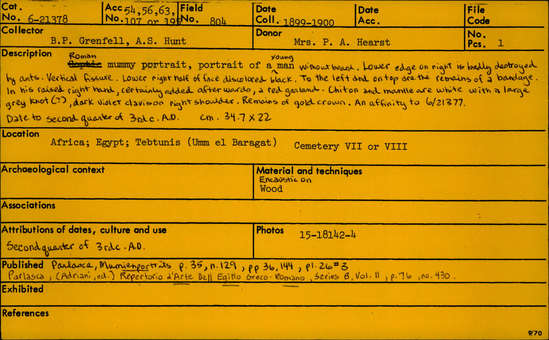 Cat. No. 6-21378 Acc 54,56,63, No. 107 or 198 Field No. 804 Date Coll. 1899-1900 Date Acc. File Code
Collector B.P. Grenfell, A.S. Hunt Donor Mrs. P. A. Hearst No. Pcs. 1
Description Roman Coptic mummy portrait, portrait of a young man without beard. Lower edge on right is badly destroyed
by ants. Vertical fissure. Lower right half of face discolored black. To the left and on top are the remains of a bandage.
In his raised right hand, certainly added afterwards, a red garland. Chiton and mantle are white with a large
grey knot (?), dark violet clavis on right shoulder. Remains of gold crown. An affinity to 6/21377.
Date to second quarter of 3rd c. A.D. cm. 34.7 x 22
Location Africa; Egypt; Tebtunis (Umm el Baragat) Cemetery VII or VIII
Archaeological context Material and techniques
Encaustic on
Wood
Associations
Attributions of dates, culture and use Photos 15-18142-4
Second quarter of 3rd c. A.D.
Published Parlasca, Mumienportraits p. 35, n. 129, pp 36, 144, pl. 26#3
Parlasca, (Adriani, ed.) Repertorio d'Arte Dell Egitto Greco-Romano, Series B, Vol. II, p. 76, no. 430.
Exhibited
References
870